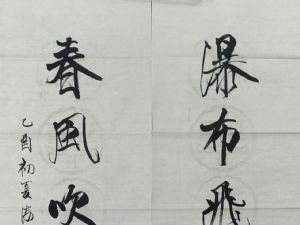 瀑布飛
春風吹
乙酉初夏